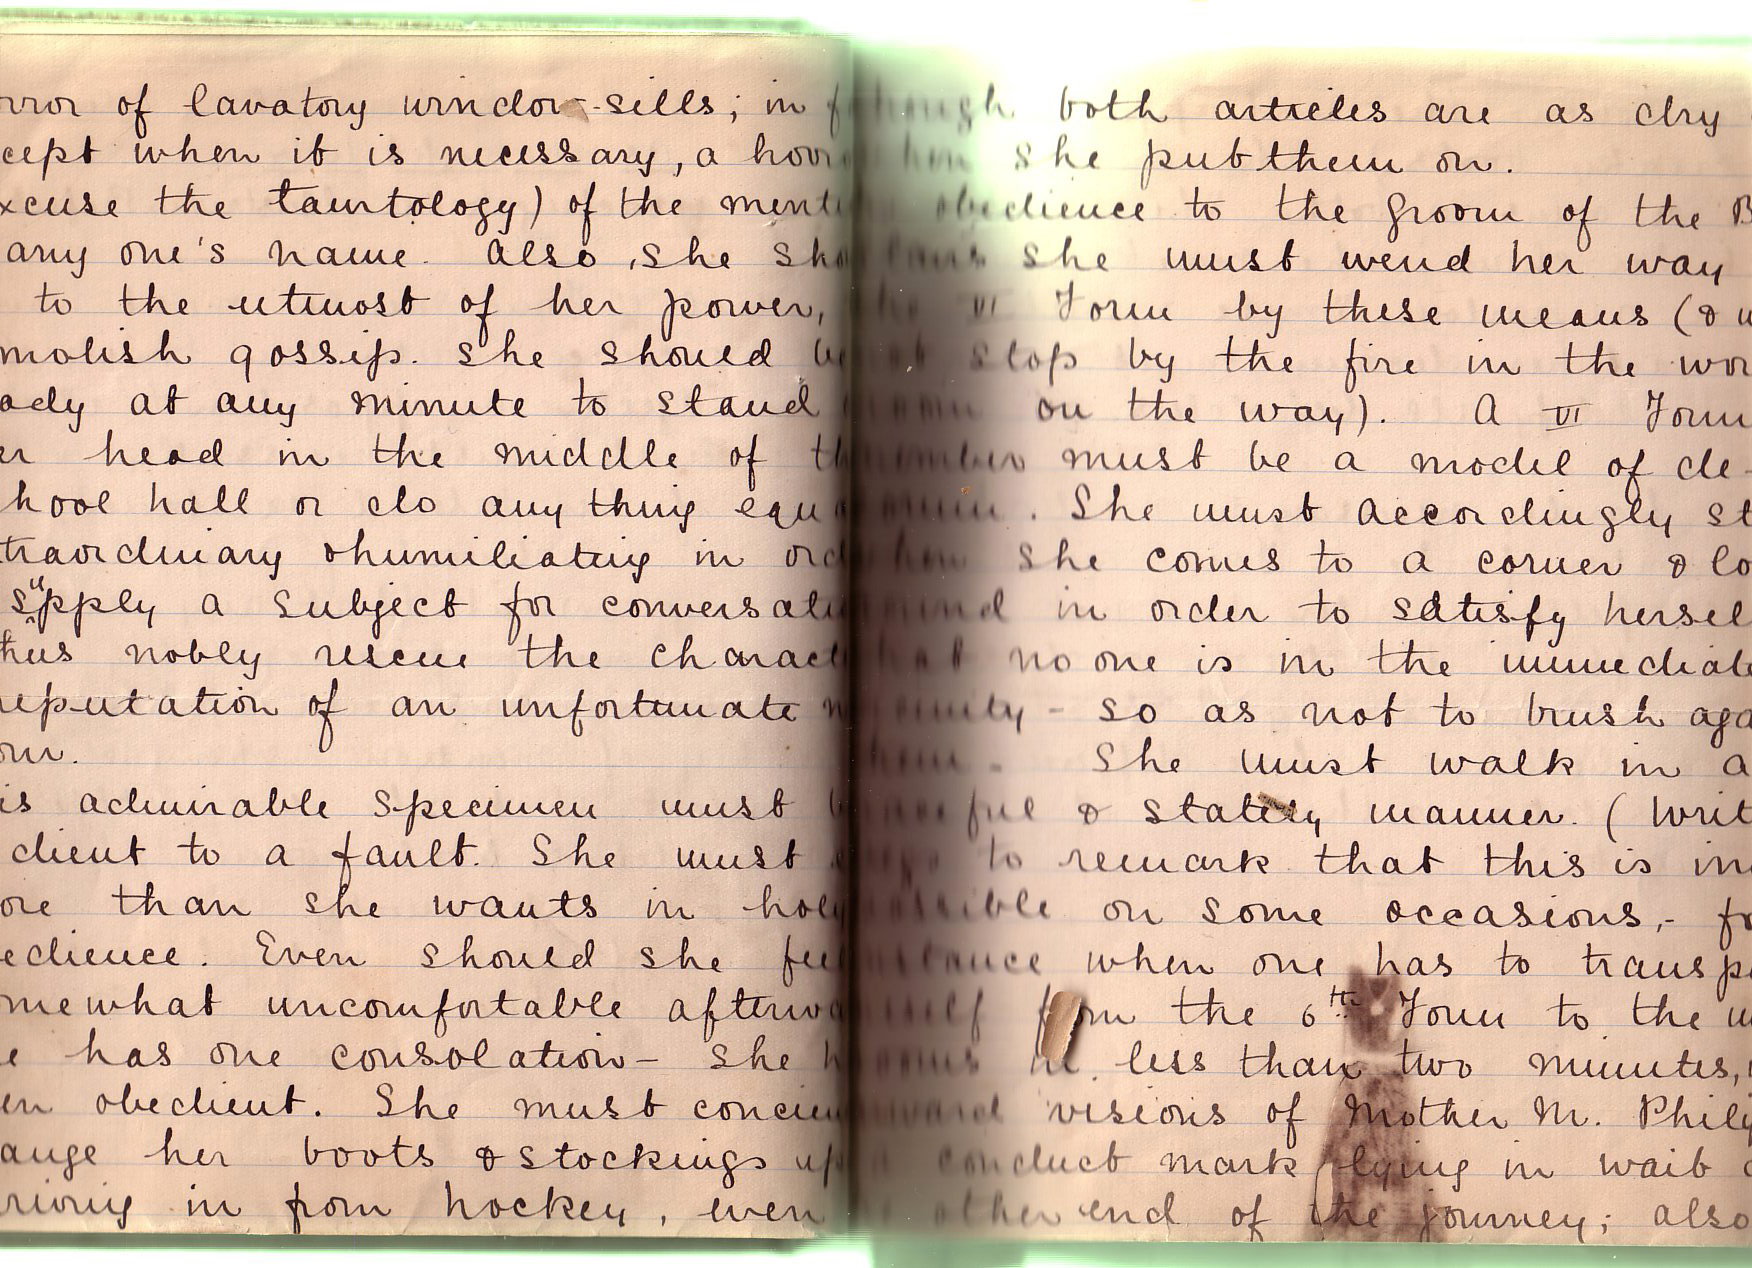 rror of lavatory window-sills; in f
cept when it is necessary, a horr
xcuse the tauntology) of the menti
any one's name. Also, she sho
to the utmost of her power,
molish gossip. She should be
ady at any minute to stand
er head in the middle of th
hool hall or do anything equa
traordinary & humiliating in ord
supply a subject for conversati
thus nobly rescue the charact
reputation of an unfortunate
our.
is admirable specimen must b
dient to a fault. She must
ore than she wants in holy
edience. Even should she feel
mewhat uncomfortable afterwa
e has one consolation - She h
en obedient. She must concien
ange her boots & stockings up
rriving in from hockey, even
though both articles are as dry
when she put them on.
obedience to the Groom of the B
she must wend her way
VI Form by these means (&
stop by the fire in the wor
on the way). A VI Form
member must be a model of de-
. She must accordingly st
when she comes to a corner & lo
round in order to satisfy hersel
that no one is in the immediate
vicinity - so as not to brush aga
them. She must walk in a
graceful & stately manner. (Writ
to remark that this is im
possible on some occasions, - fo
instance when one has to transp
self from the 6th Form to the
in less than two minutes,
visions of Mother M. Philip
conduct mark lying in wait
other end of the journey; also